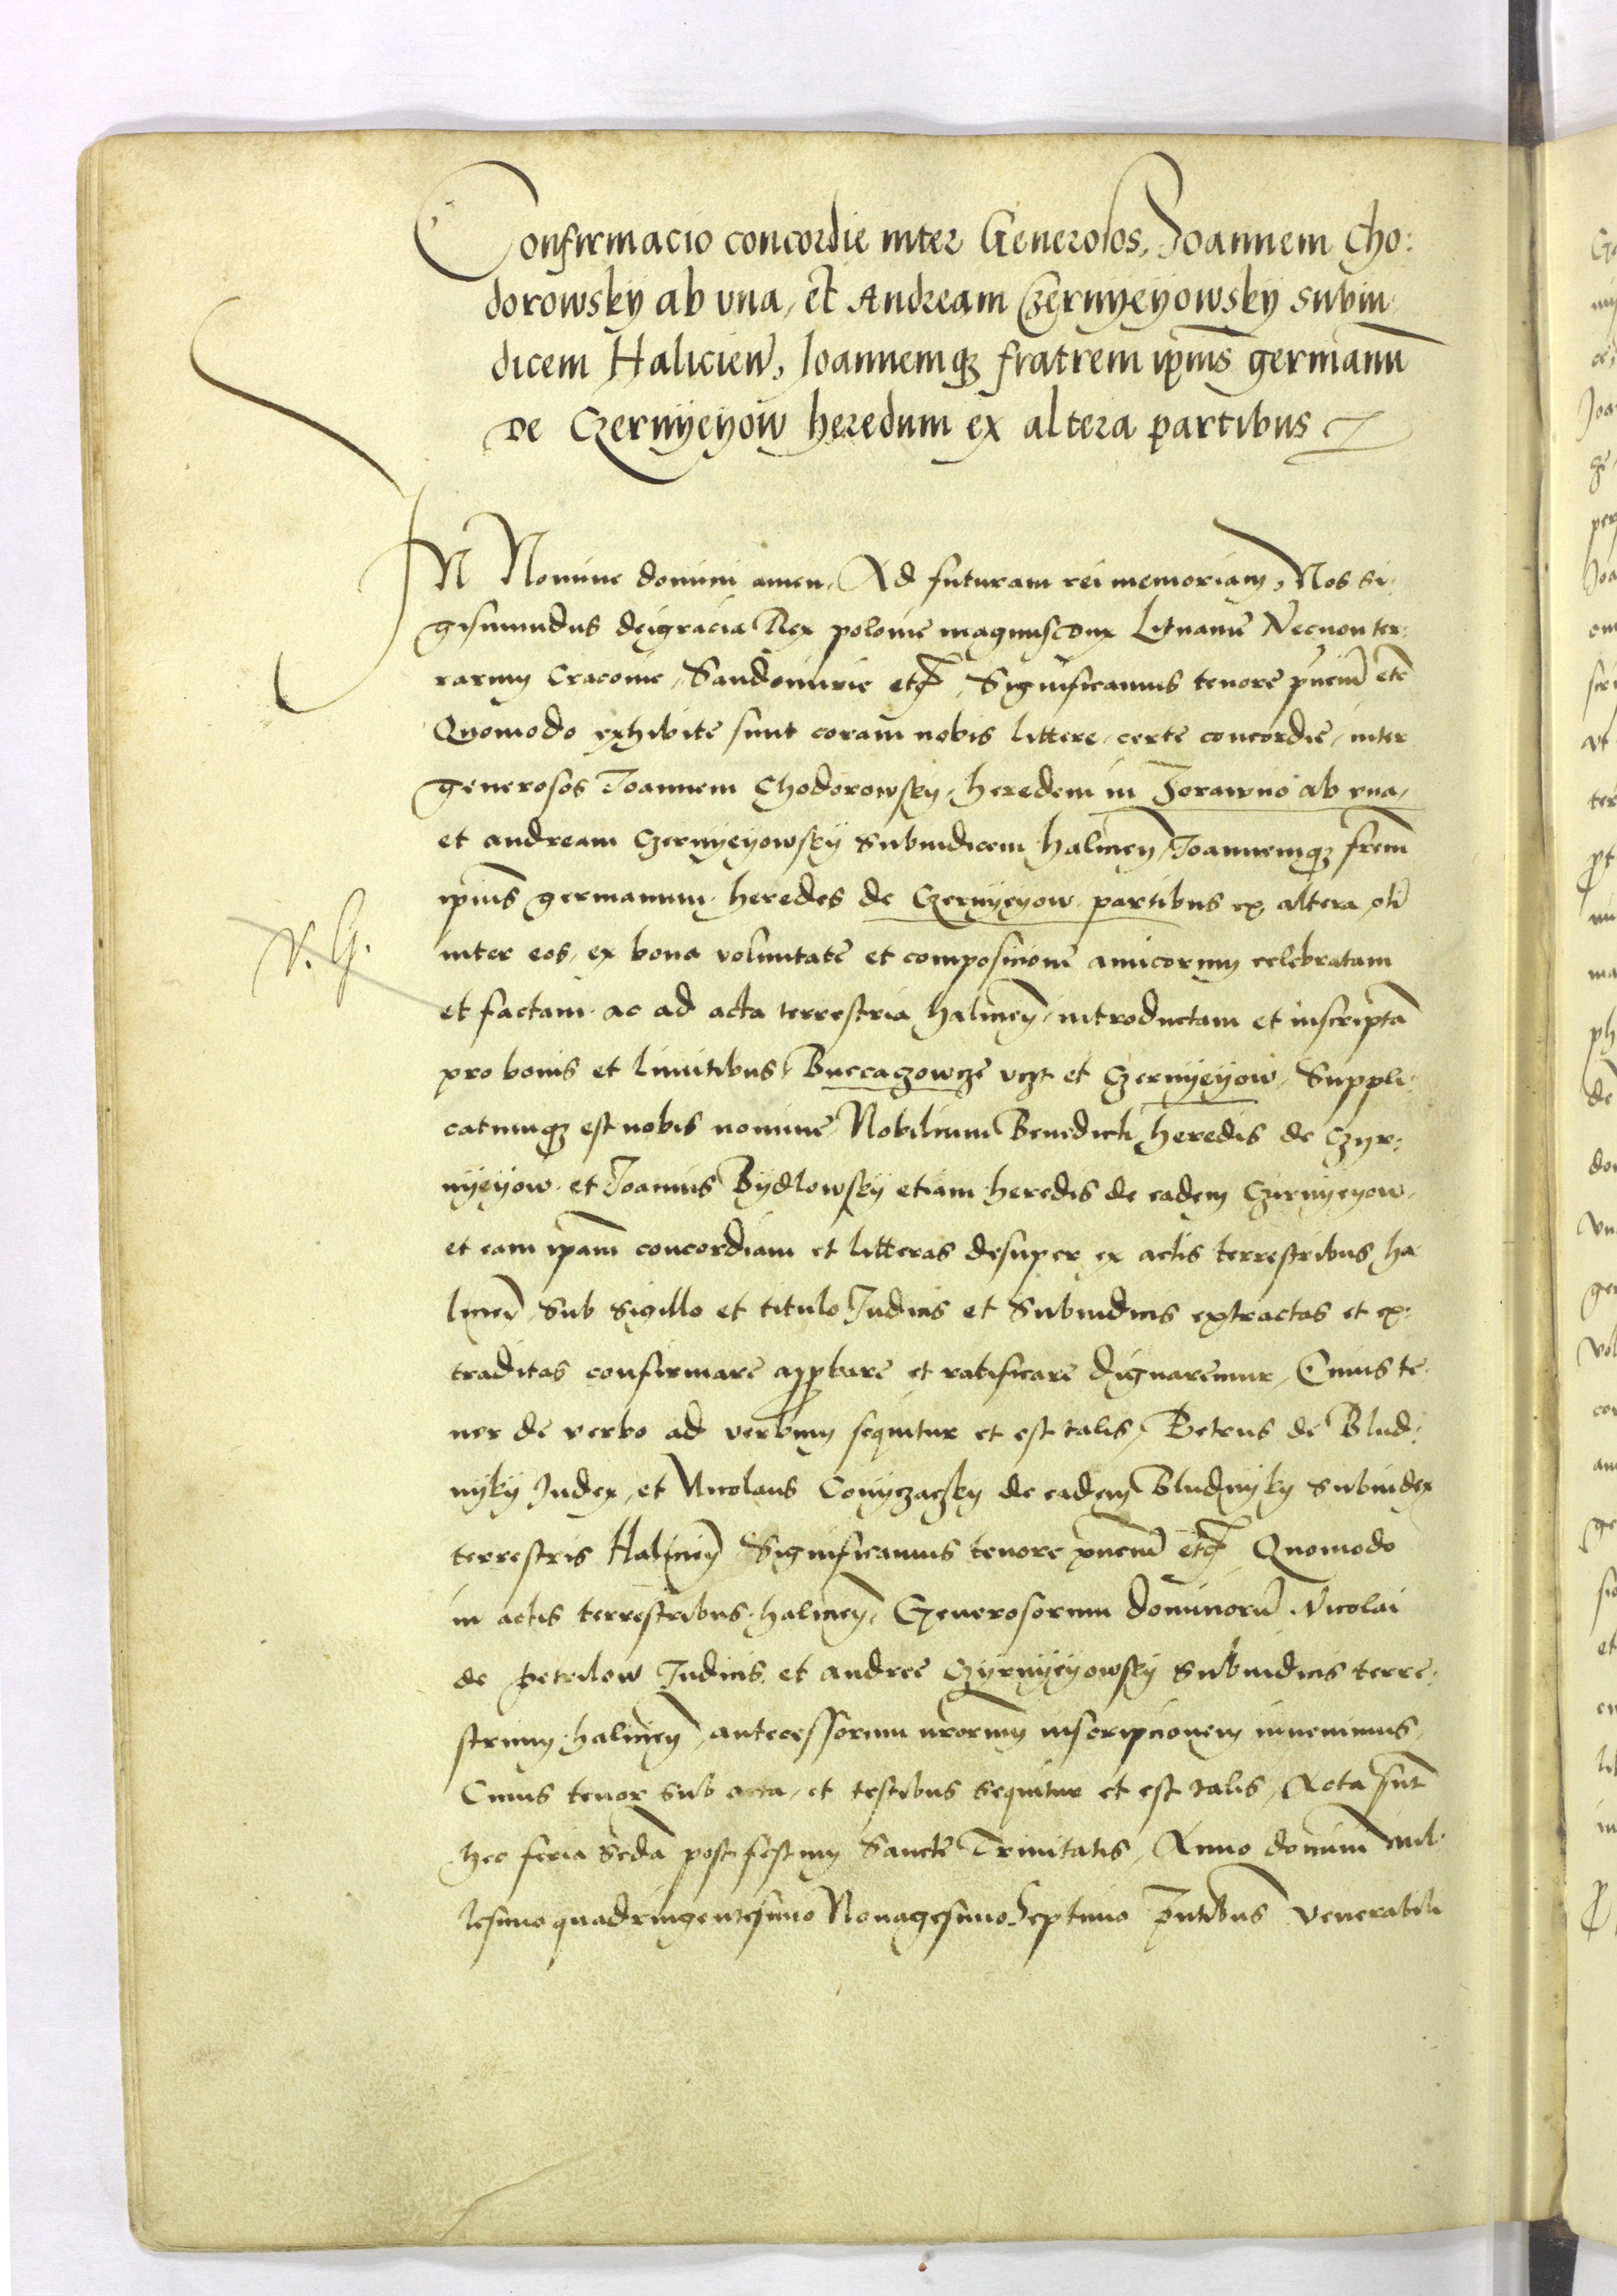 Confirmacio concordie inter Generosos, Joannem Cho:
dorowsky ab vna, et Andream Czernyeyowsky subiu,
dicem Halicien̄, Joannemqꝫ fratrem ip̄ius germanū
de Czernyeyow heredum ex altera partibus
IN Nomine domini amen, Ad futuram rei memoriam, Nos si,
gismundus deigracia Rex polonie magnusdux Lituanie Necnon ter:
rarum Cracouie, Sandomirie etc̄, Significamus tenore pn̄ciū etc̄
Quomodo exhibite sunt coram nobis littere, certe concordie, inter
generosos Joannem Chodorowsky, heredem in Zorawno ab vna,
et andream Czernyeyowsky subiudicem halicien̄, Joannemqꝫ frēm
ip̄ius germanum, heredes de Czernyeyow, partibus ex altera
V. G.
inter eos, ex bona voluntate et composicione amicorum celebratam
et factam, ac ad acta terrestria halicien̄, introductam et inscriptā
pro bonis et limitibus, Buccaczowcze vczt et Czernyeyow, Suppli:
catumqꝫ est nobis nomine, Nobilium Benedicti heredis de Czyr:
nyeyow, et Joannis Bydlowsky etiam heredis de eadem Czirnyeyow,
et eam ip̄am concordiam et litteras desuper ex actis terrestribus ha
licien̄, sub sigillo et titulo Judicis et Subiudicis extractas et ex,
traditas confirmare approbare et ratificare dignaremur, Cuius te,
nor de verbo ad verbum sequitur et est talis, Petrus de Blud:
nyky Judex, et Nicolaus Conyczaczky de eadem Bludnyky subiudex
terrestris Halicien̄ Significamus tenore pn̄ciū etc̄ Quomodo
in actis terrestribus, halicien̄, Generosorum dominorū Nicolai
de petrilow Judicis, et andree Czyrnyeyowsky subiudicis terre,
strium, halicien̄, antecessorum nr̄orum inscripcionem inuenimus,
Cuius tenor sub acta, et testibus sequitur et est talis, Acta sunt
hec feria sc̄da post festum Sancte Trinitatis, Anno domini mil,
lesimo quadringentesimo Nonagesimo septimo pn̄tibus venerabili